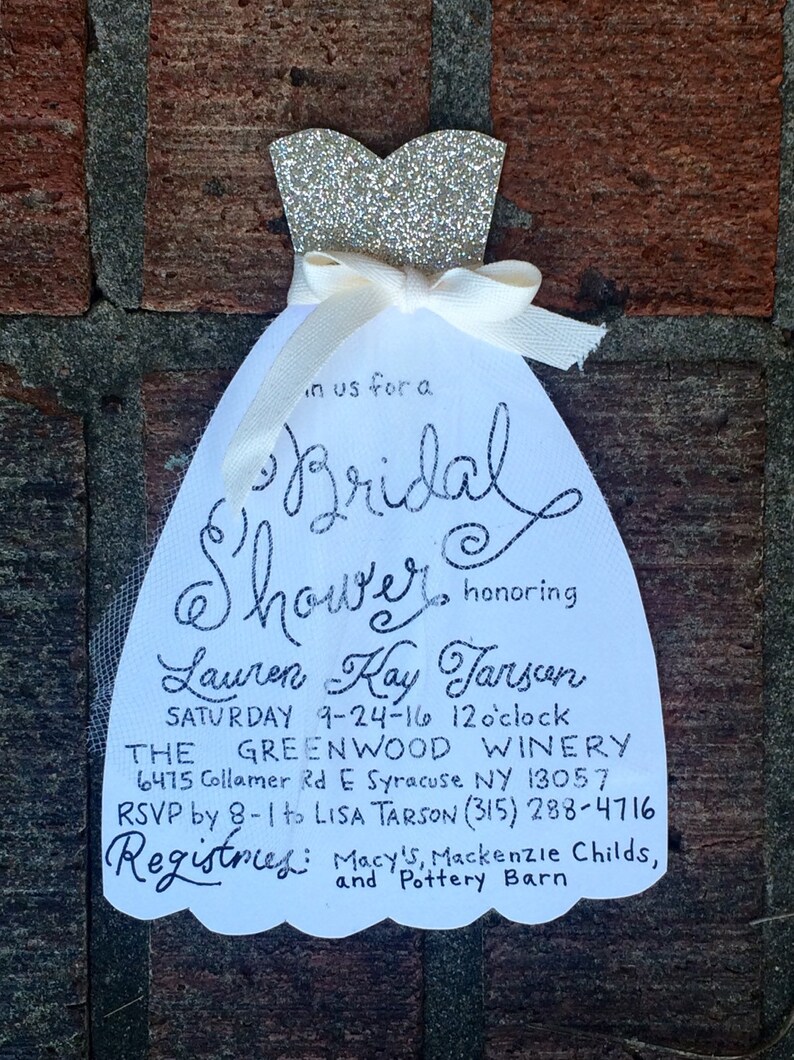 us for a
Bridal
Shower honoring
Lauren Kay Tarson
SATURDAY 9-24-16 12 o'clock
THE GREENWOOD WINERY
6475 Collamer Rd E Syracuse NY 13057
RSVP by 8-1 to LISA TARSON (315) 288-4716
Registries: Macy's, Mackenzie Childs,
and Pottery Barn